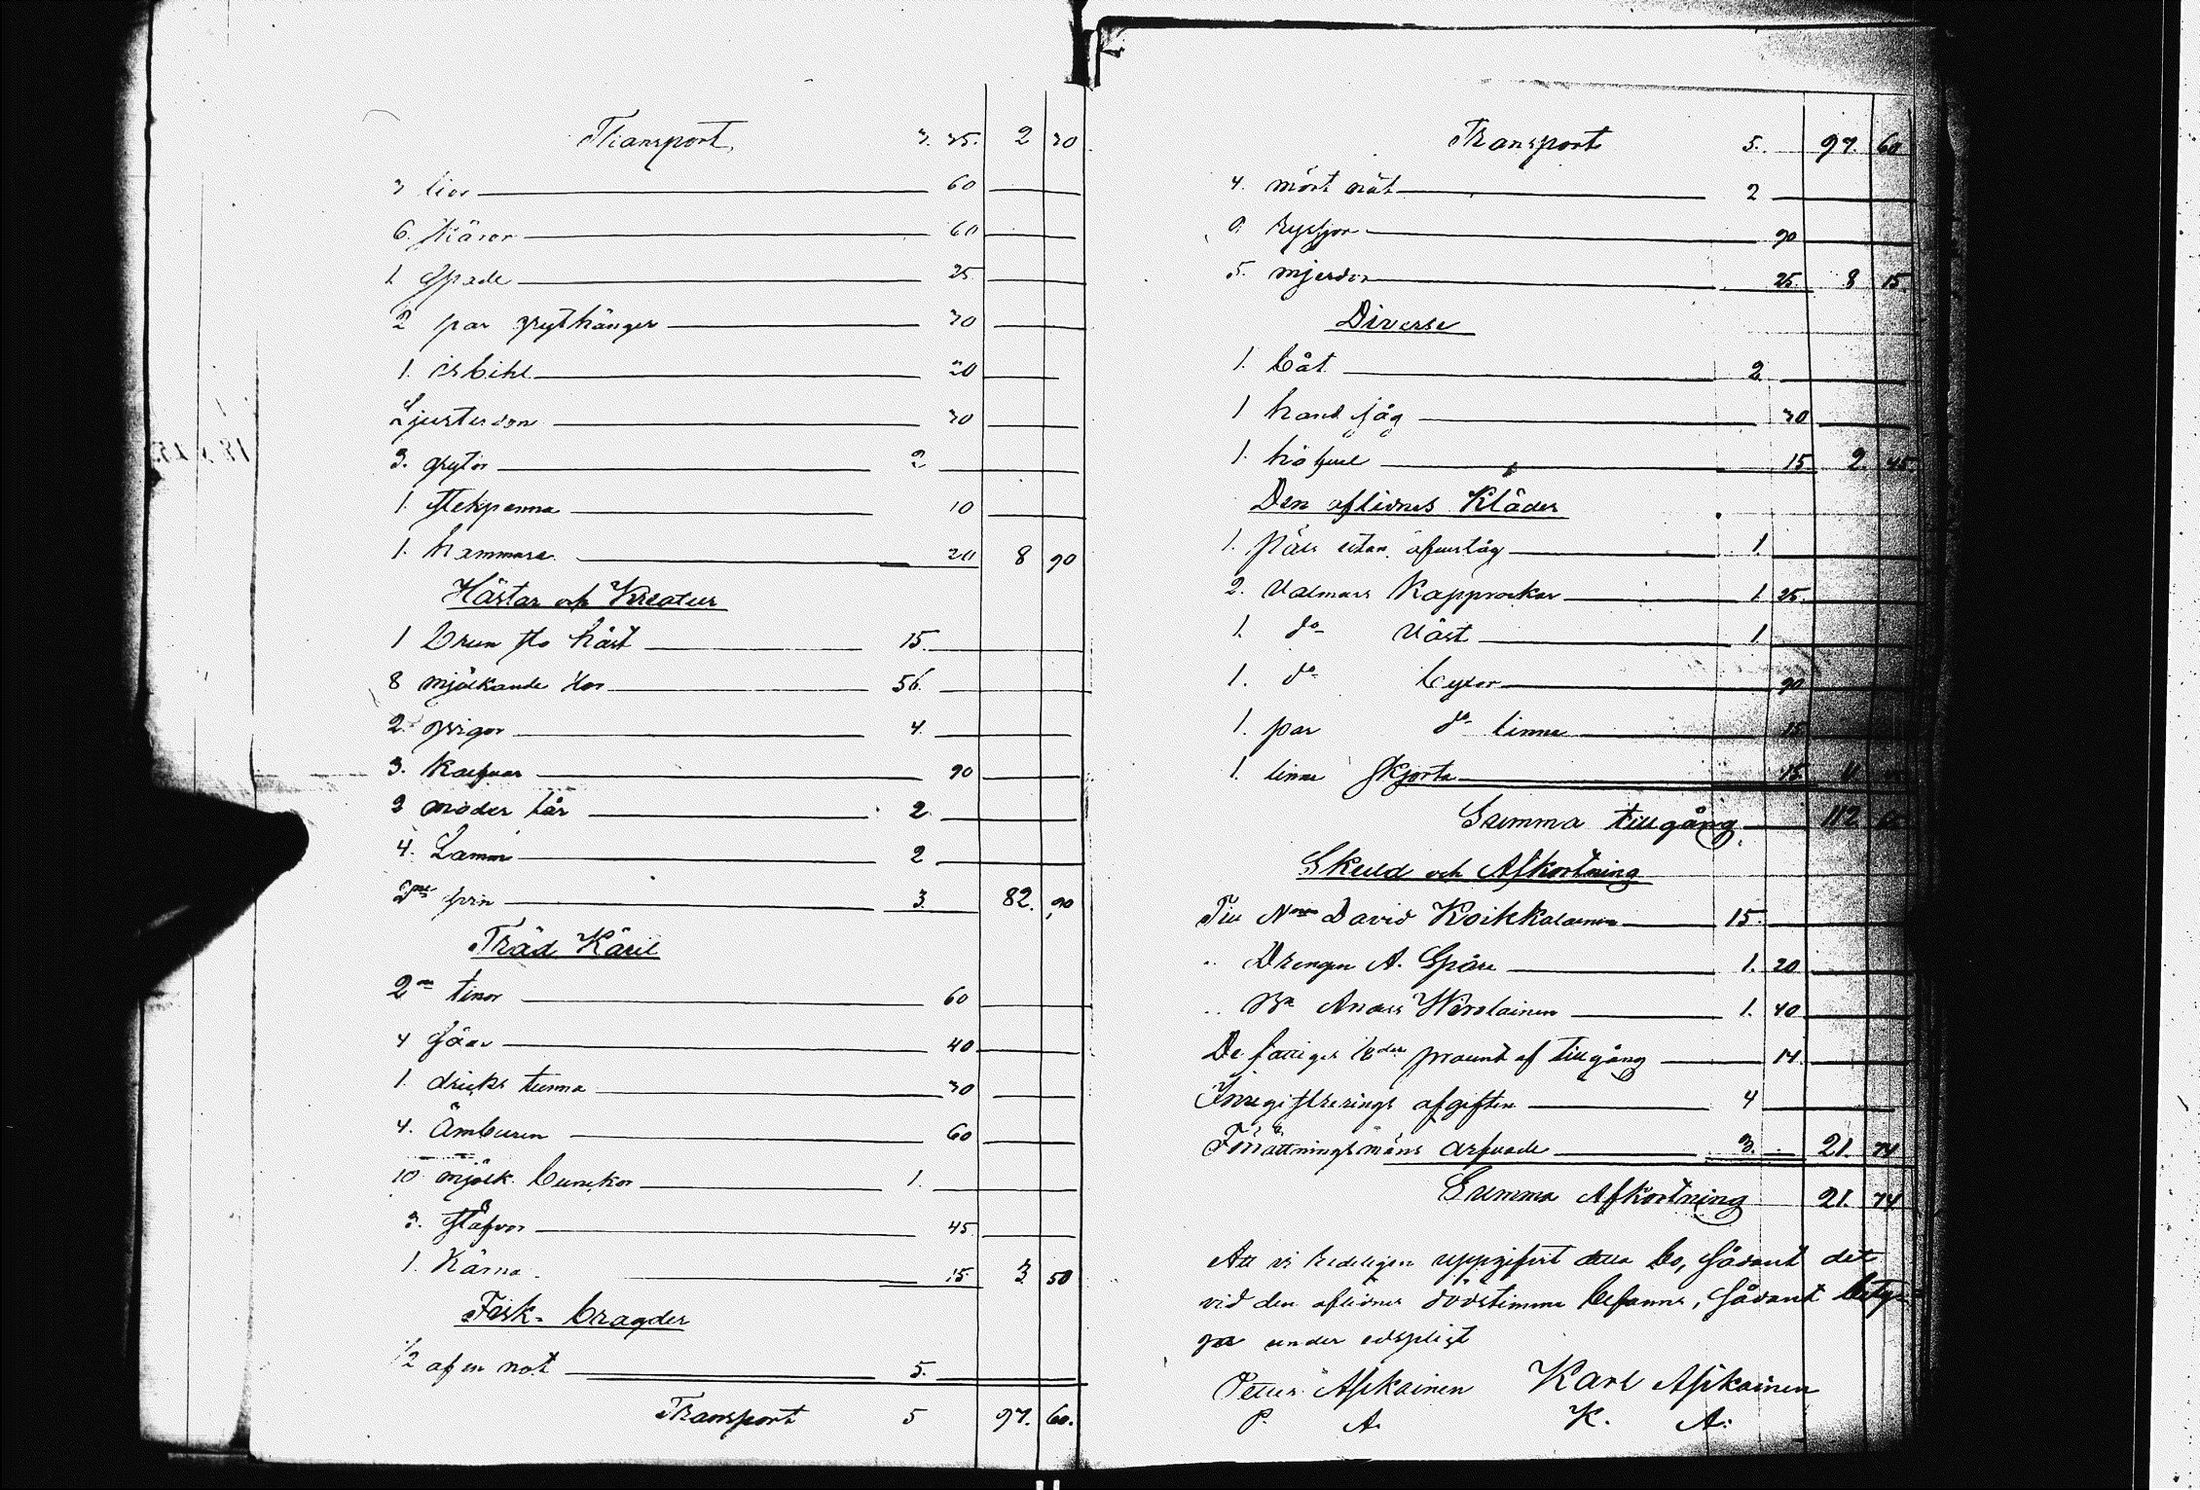 Transport, 3. 35. 2 30
3 liar 60
6 skäror 60
1 Spade 25
2 par grythänger 30
1. isbihl 20
Ljusterdon 30
3. grytor 2
1. stekpanna 10
1. hammare 20 8 90
Hästar och Kreatur
1 Brun sto häst 15.
8 mjölkande Kor 56.
2. qvigor 4.
3. Kalfvar 90
2 moder får 2
4. Lamm 2
2ne svin 3. 82. 90
Träd Käril
2ne tinor 60
4 såar 40
1. dricks tunna 30
4. Ämbaren 60
10 mjölk bunckor 1.
3. stäfvor 45
1. Kärna 15 3 50
Fisk-bragder
1/2 af en not 5.
Transport 5 97. 60.
Transport 5. 97. 60
4. mört nät 2
9. ryssjor 90
5. mjerdor 25 8 15.
Diverse
1. båt 2
1 hand såg 30
1. höfvel 15 2. 45
Den aflidnes Kläder
1. päls utan öfvertåg 1.
2. Valmars Kapprockar 1. 25.
1. do Väst 1.
1. do byxor 90
1. par do linne 15
1. linne skjorta 15.
Summa tillgång 112
Skuld och Afkortning
Till David Koikkalainen 15.
" Drengen A. Spåre 1. 20
" Anders 1. 40
De fattiges procent af tillgång 14.
Inregistrerings afgiften 4
Förrättningsmäns arfvode 3. 21. 74
Summa Afkortning 21. 74
Att vi redeligen uppgifvit detta bo, sådant det
vid den aflidnes dödstimma befanns, sådant bety-
ga under edsplig t
Petter Asikainen Karl Asikainen
P. A. K. A.